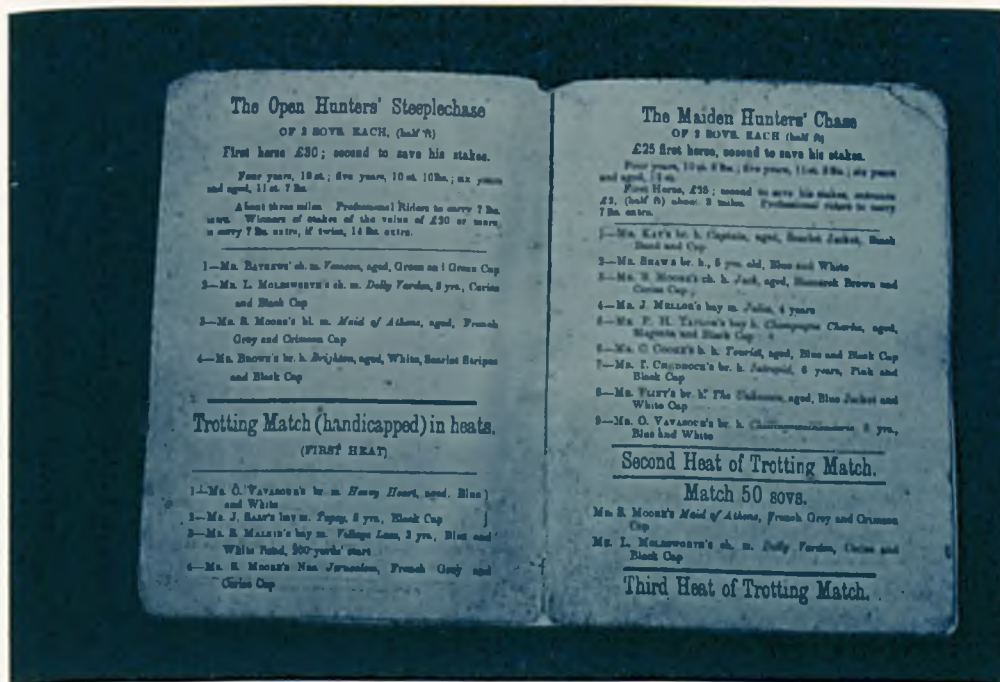 The Open Hunters' Steeplechase
OF 2 SOVS. EACH, (half ft)
First horse £30; second to save his stakes.
Four years, 10 st.; five years, 10 st. 10lbs.; six years
and aged, 11 st. 7 lbs.
About three miles. Professional Riders to carry 7 lbs.
extra. Winners of stakes of the value of £20 or more,
to carry 7 lbs. extra, if twice, 14 lbs. extra.
1—MR. ch. m. aged, Green and Green Cap
2—MR. L. MOLESWORTH'S ch. m. Dolly Varden, 5 yrs., Cerise
and Black Cap
3—MR. S. MOORE'S bl. m. Maid of Athens, aged, French
Grey and Crimson Cap
4—MR. BROWN'S br. h. Brighton, aged, White, Scarlet Stripes
and Black Cap
Trotting Match (handicapped) in heats.
(FIRST HEAT)
1—MR. O. VAVASOUR'S br. m. Heavy Heart, aged. Blue
and White
2—MR. J. bay m. Topsy, 5 yrs., Black Cap
3—MR. S. bay m. Village Lass, 3 yrs., Blue and
White Band, yards' start
4—MR. S. MOORE'S Nns. Jerusalem, French Grey and
Cerise Cap
The Maiden Hunters' Chase
OF 2 SOVS. EACH (half ft)
£25 first horse, second to save his stakes.
Four years, 10 st. lbs.; five years, 11 st. lbs.; six years
and aged, 12 st.
First Horse, £25; second to save his stakes, entrance
£2, (half ft) about 3 miles. Professional riders to carry
7 lbs. extra.
1—MR. KAY'S br. h. Captain, aged, Scarlet Jacket, Black
Band and Cap
2—MR. SHAW'S br. h., 5 yrs. old, Blue and White
3—MR. S. MOORE'S ch. h. Jack, aged, Bismarck Brown and
Cerise Cap
4—MR. J. MELLOR'S bay m. Julia, 4 years
5—MR. F. H. TAYLOR'S bay h. Champagne Charlie, aged,
Magenta and Black Cap
6—MR. C. COOKE'S b. h. Tourist, aged, Blue and Black Cap
7—MR. T. br. h. Intrepid, 6 years, Pink and
Black Cap
8—MR. FLINT'S br. h. The Unknown, aged, Blue Jacket and
White Cap
9—MR. O. VAVASOUR'S br. h. yrs.,
Blue and White
Second Heat of Trotting Match.
Match 50 sovs.
MR. S. MOORE'S Maid of Athens, French Grey and Crimson
Cap
MR. L. MOLESWORTH'S ch. m. Dolly Varden, Cerise and
Black Cap
Third Heat of Trotting Match.